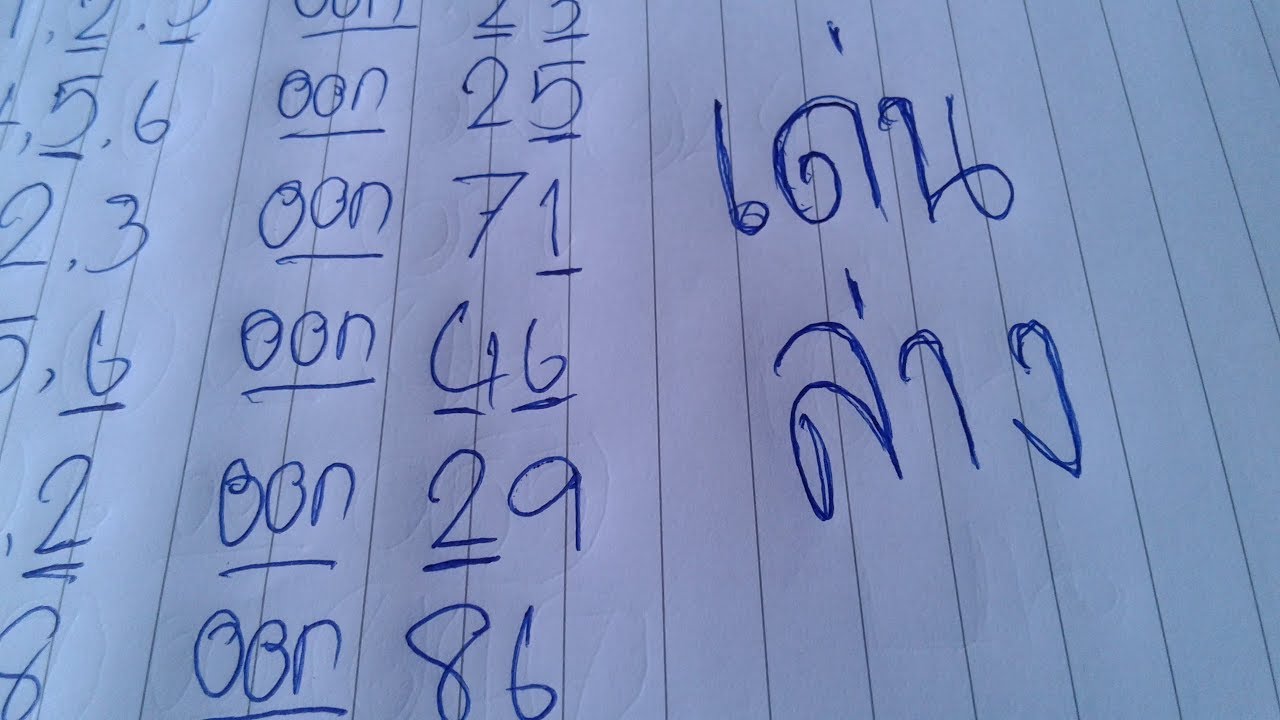 ,2.3 ออก 23
,5.6 ออก 25
2.3 ออก 71
5,6 ออก 46
.2 ออก 29
8 ออก 86
เด่น
ล่าง